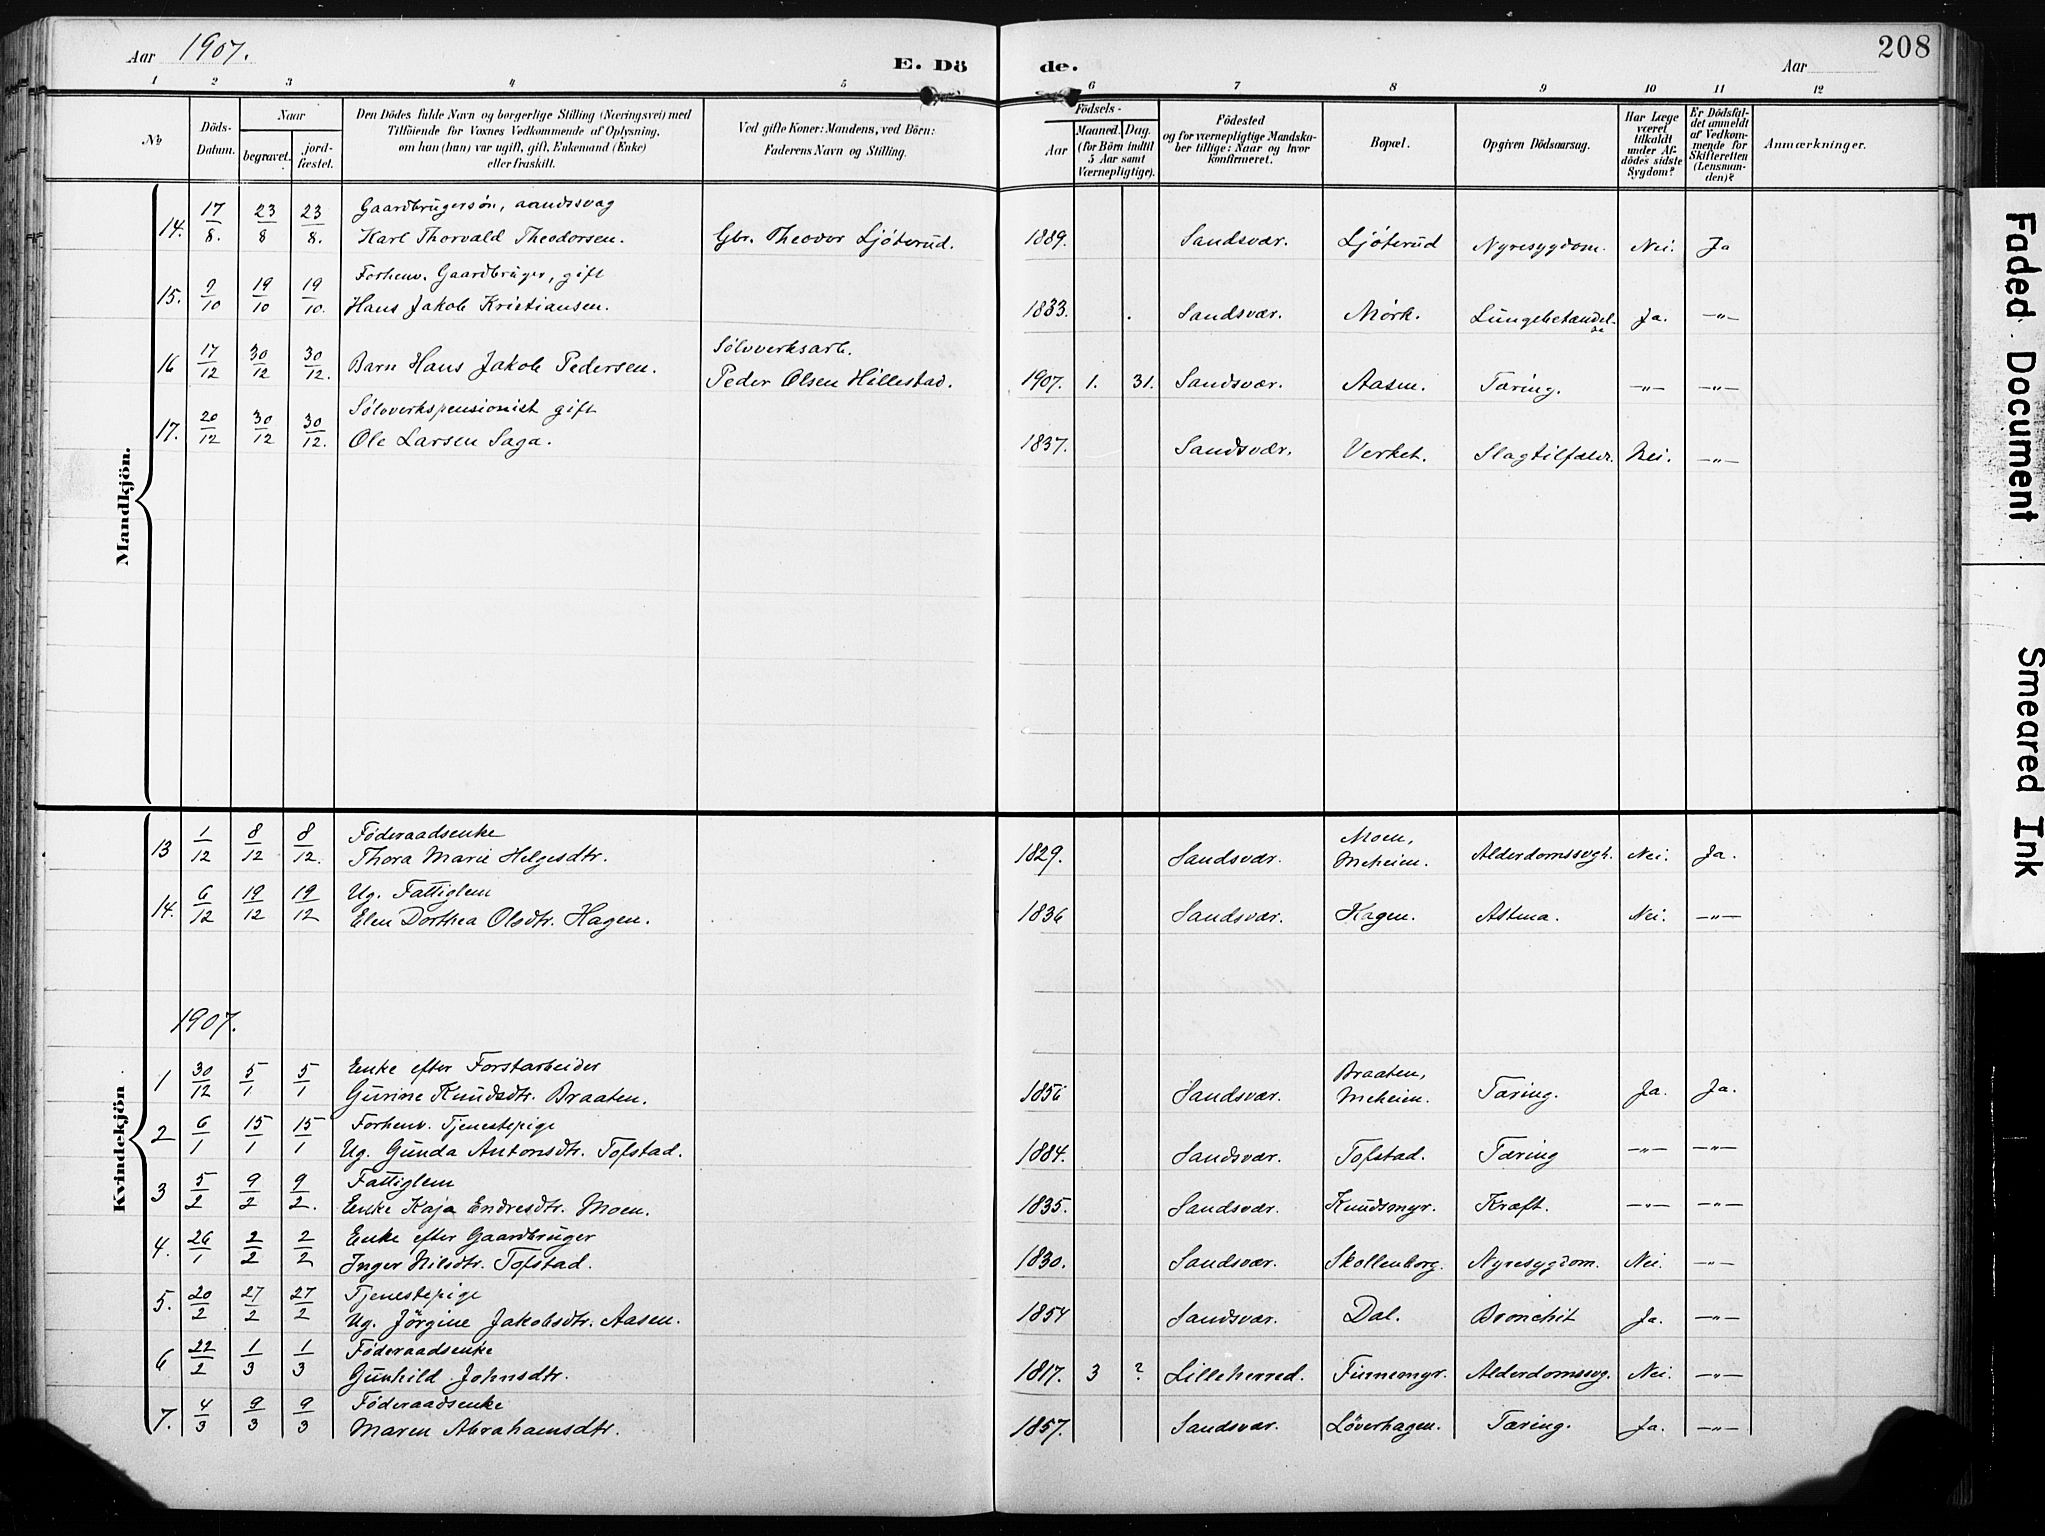 Aar 1907. E. Dö de. Aar 208
1 2 3 4 5 6 7 8 9 10 11 12
No
Döds-Datum.
Naar
begravet.
jord-fæstet.
Den Dödes fulde Navn og borgerlige Stilling (Næringsvei) med
Tilföiende for Voxnes Vedkommende af Oplysning,
om han (hun) var ugift, gift, Enkemand (Enke)
eller fraskilt.
Ved gifte Koner: Mandens, ved Börn:
Faderens Navn og Stilling.
Födsels-
Aar
Maaned. Dag.
(for Börn indtil
5 Aar samt
Værnepligtige).
Födested
og for værnepligtige Mandska-
ber tillige: Naar og hvor
konfirmeret.
Bopæl.
Opgiven Dödsaarsag.
Har Læge
været
tilkaldt
under Af-
dödes sidste
Sygdom?
Er Dödsfal-
det anmeldt
af Vedkom-
mende for
Skifteretten
(Lensman-
den)?
Anmærkninger.
Mandkjön.
Gaardbrugersøn, aandssvag
14. 17/8. 23/8 23/8. Karl Thorvald Theodorsen. Gbr. Theodor Ljøterud. 1889. Sandsvær. Ljøterud Nyresygdom. Nei. Ja
Forhenv. Gaardbruger, gift
15. 9/10 19/10 19/10. Hans Jakob Kristiansen. 1833. Sandsvær. Mørk. Lungebetændel-se Ja. —"—
Sølvverksarb.
16 17/12 30/12 30/12. Barn Hans Jakob Pedersen. Peder Olsen Hillestad. 1907. 1. 31. Sandsvær. Aasen. Tæring. —"— —"—
Sølvverkspensionist gift
17. 20/12 30/12 30/12. Ole Larsen Saga. 1837. Sandsvær. Verket. Slagtilfælde. Nei. —"—
Kvindekjön
Føderaadsenke Moen,
13 1/12 8/12 8/12. Thora Marie Helgesdtr. 1829. Sandsvær. Meheien. Alderdomssvgh. Nei. Ja.
Ug. Fattiglem
14. 6/12 19/12 19/12 Elen Dorthea Olsdtr. Hagen. 1836 Sandsvær. Hagen. Astma. Nei. —"—
1907.
Enke efter Forstarbeider Braaten,
1 30/12 5/1 5/1 Gurine Knudsdtr. Braaten. 1856 Sandsvær. Meheien. Tæring. Ja. Ja.
Forhenv. Tjenestepige
2 6/1 15/1 15/1 Ug. Gunda Antonsdtr. Tofstad. 1884. Sandsvær. Tofstad. Tæring —"— —"—
Fattiglem
3 5/2 9/2 9/2. Enke Kaja Endresdtr. Moen. 1835. Sandsvær. Knudsmyr. Kræft. —"— —"—
Enke efter Gaardbruger
4. 26/1 2/2 2/2 Inger Nilsdtr. Tofstad. 1830. Sandsvær. Skollenborg. Nyresygdom. Nei. —"—
Tjenestepige
5. 20/2 27/2 27/2 Ug. Jörgine Jakobsdtr. Aasen. 1854 Sandsvær. Dal. Bronchit Ja. —"—
Føderaadsenke
6 22/2 1/3 1/3 Gunhild Johnsdtr. 1817. 3 ? Lilleherred. Furnemyr. Alderdomssvg. Nei. —"—
Føderaadsenke
7. 4/3 9/3 9/3 Maren Abrahamsdtr. 1857. Sandsvær. Løverhagen. Tæring. Ja. —"—
Faded Document
Smeared Ink